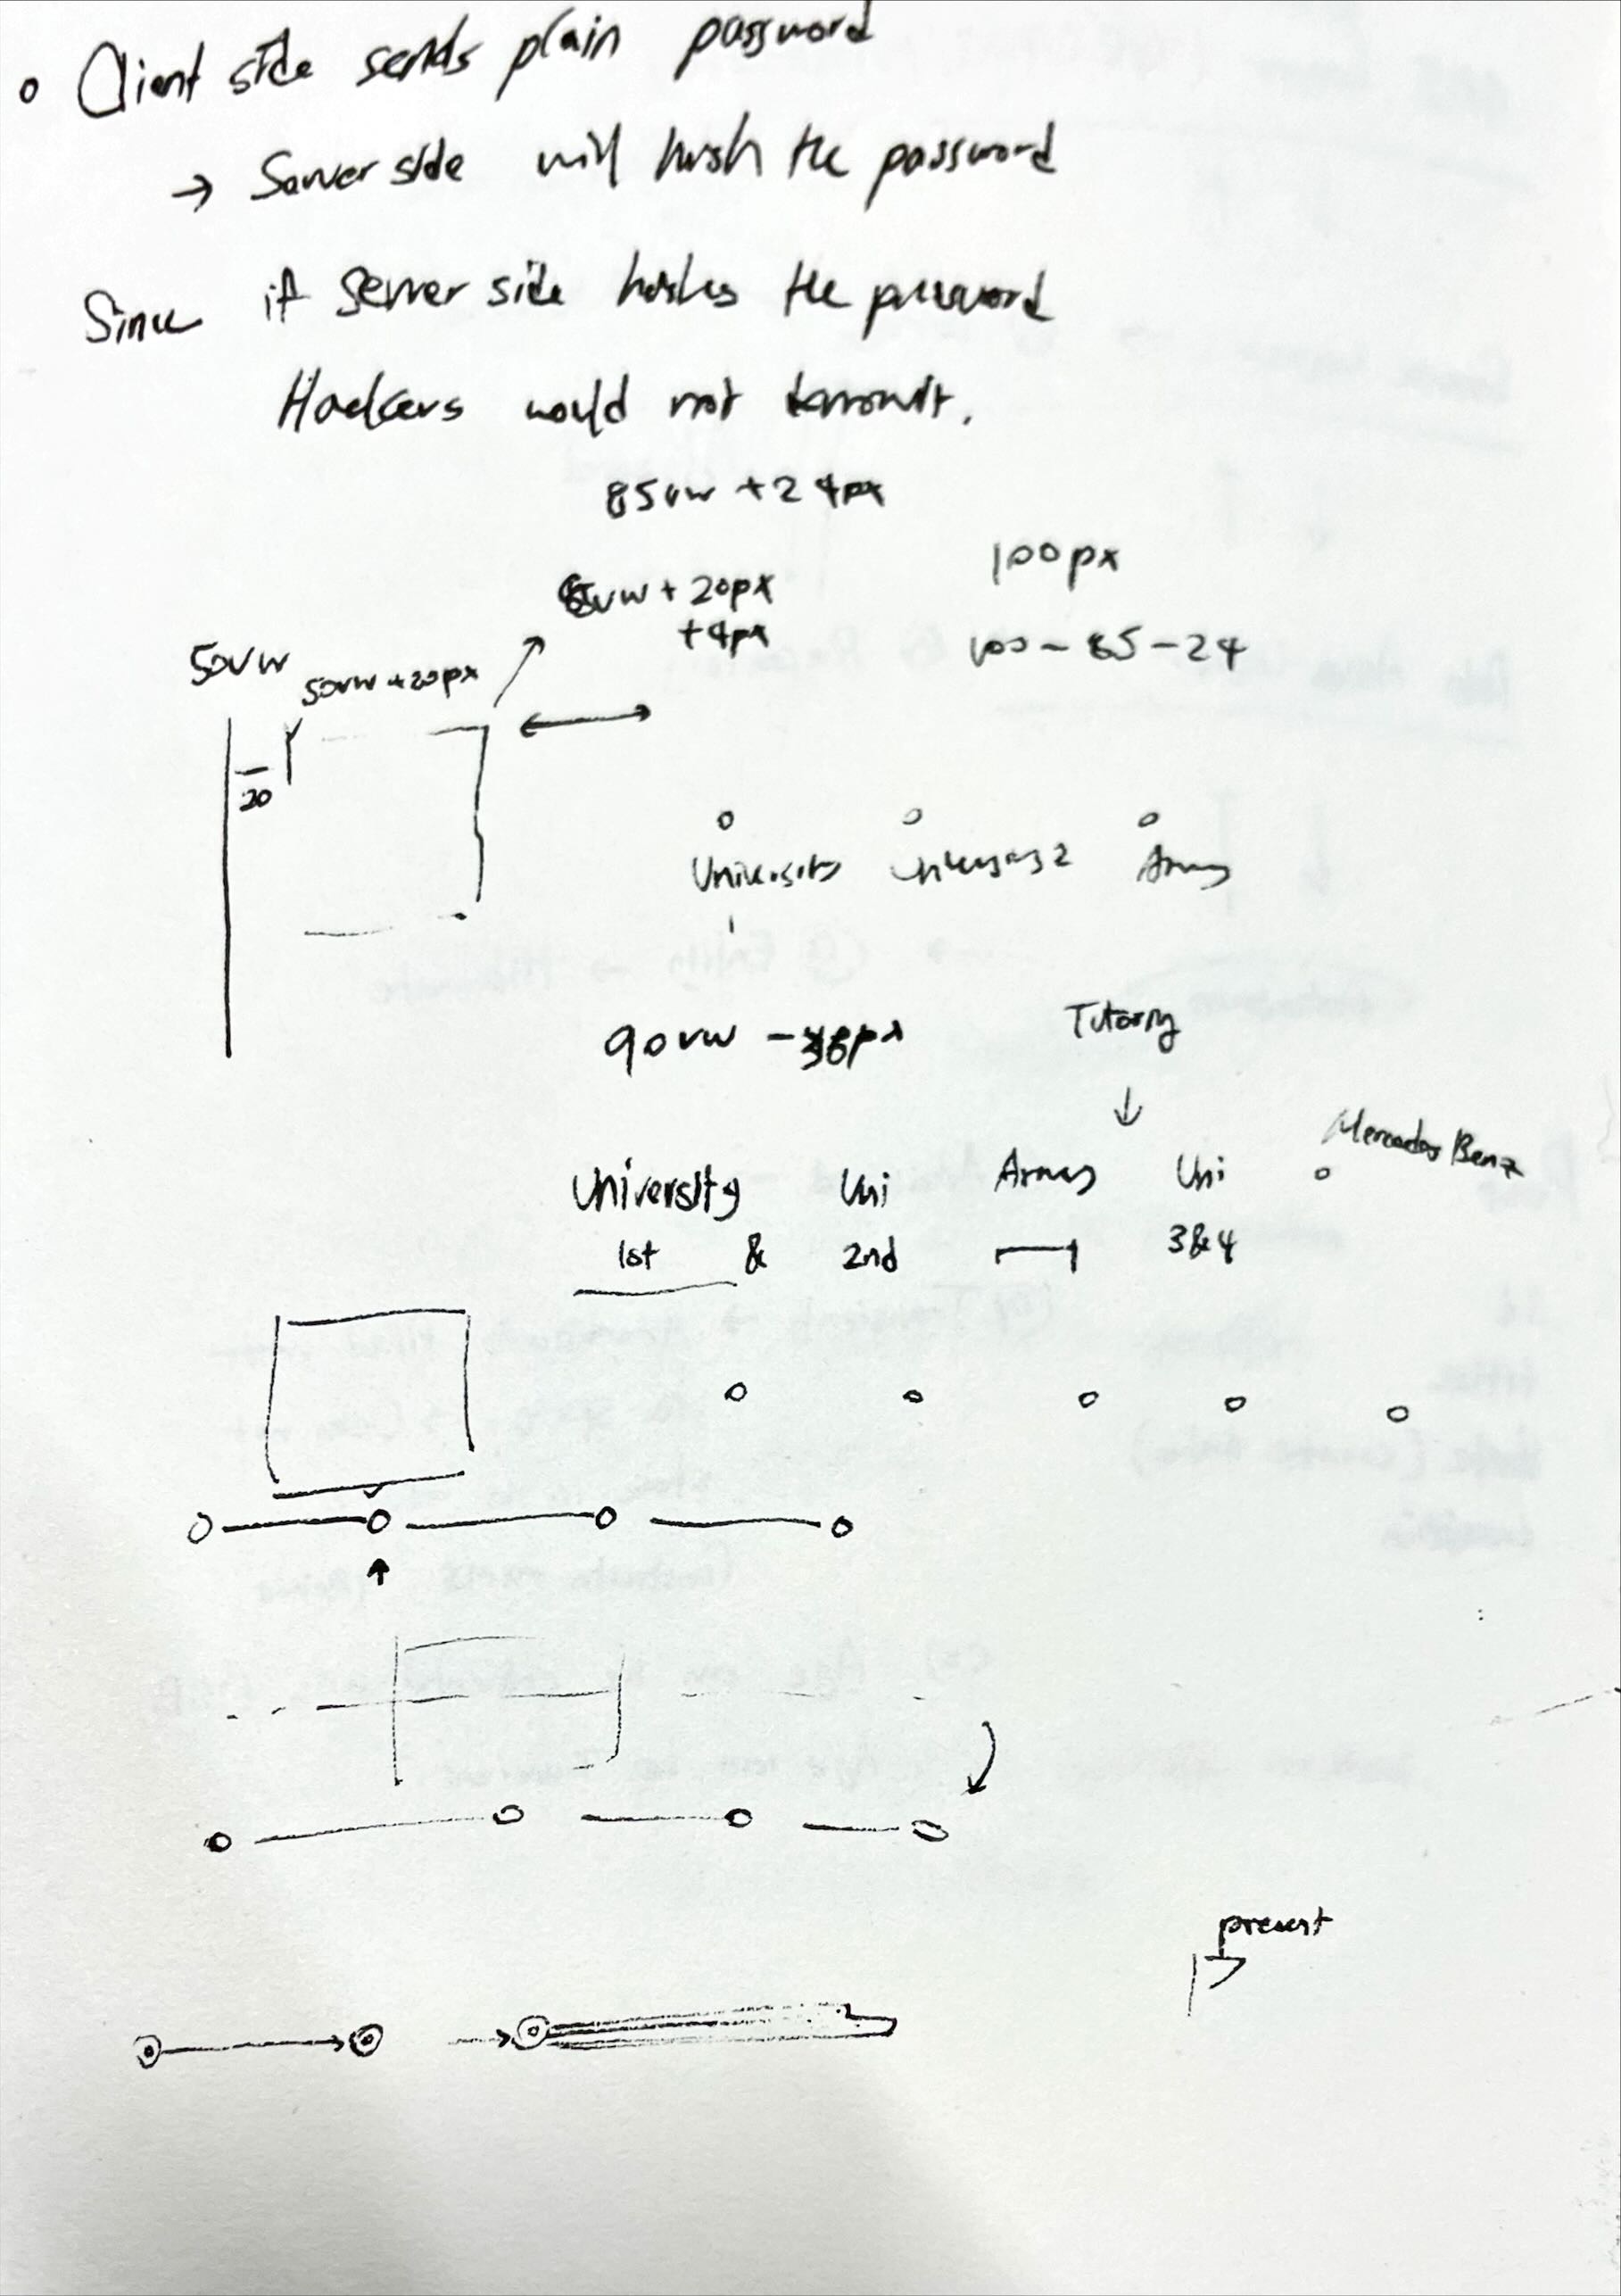 Client side sends plain password
→ Server side will hash the password
Since if server side hashes the password
Hackers would not
85vw + 24px
100px
vw + 20px
+4px
100 - 85 - 24
50vw
50vw + 20px
20
University University 2 Army
90vw - px
Tutoring
↓
Mercedes Benz
University Uni Army Uni
1st & 2nd 3&4
present